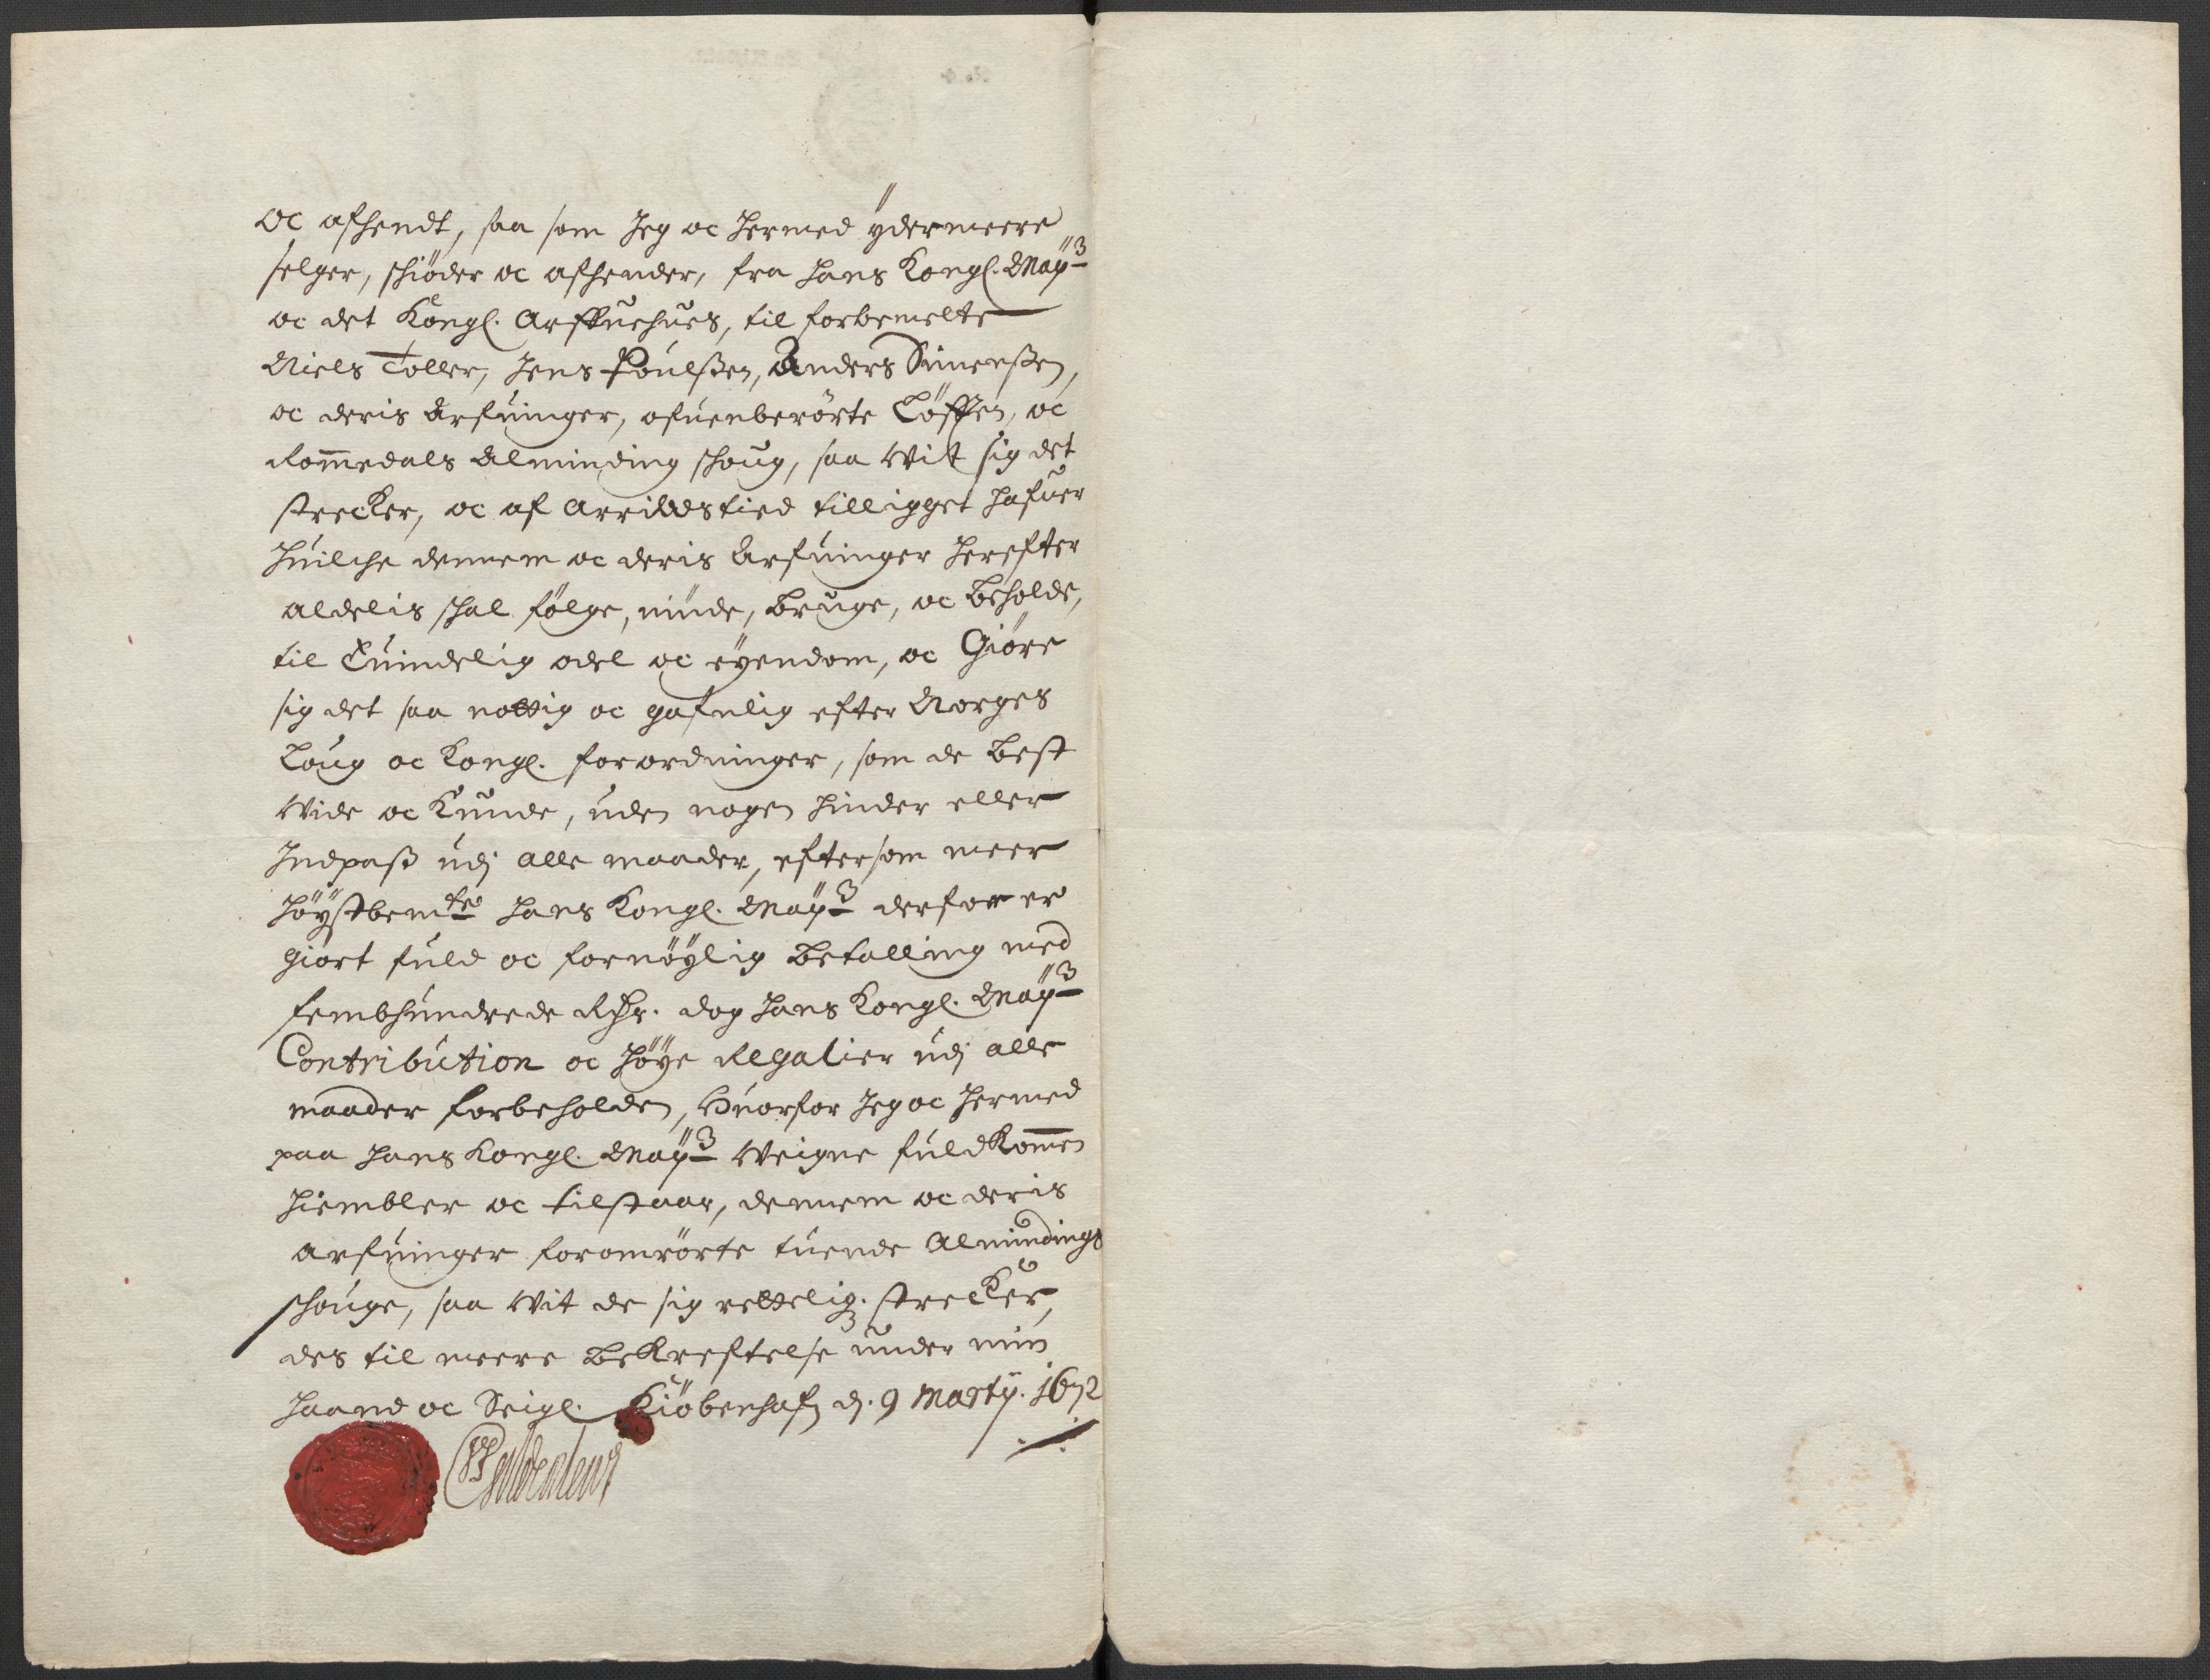 oc afhendt, saa som Jeg oc hermed ÿdermeere
selger, schiöder oc afhender, fra hans Kongl. Maÿ:
oc det Kongl. Arffuehues, til forbemelte
Niels Toller, Jens Poulßen, Anders Simenßen,
oc deris Arfuinger, ofuenberörte Löffen, oc
Rommedals Alminding schoug, saa wit sig det
strecker, oc af Arrilds tied tilligget hafuer
huilche dennem oc deris Arfuinger herefter
aldelis schal fölge, niude, bruge, oc beholde,
til Euindelig odel oc eÿendom, oc Giöre
sig det saa nottig oc gafnlig efter Norges
Loug oc Kongl. forordninger, som de best
wide oc Kunde, uden nogen hinder eller
Indpaß udj alle maader, eftersom meer
höÿstbemte hans Kongl. Maÿ: derfor er
giort fuld oc fornöÿlig betalling med
fembhundrede Rdr. dog hans Kongl. Maÿ:
Contribution oc höÿe Regalier udj alle
maader forbeholden, Huorfor Jeg oc hermed
paa hans Kongl. Maÿ: weigne fuldkommen
hiembler oc tilstaar, dennem oc deris
arfuinger foromrörte tuende Almindings
schouge, saa wit de sig rettelig strecker,
des til meere bekreftelse under min
haand oc Seigl. Kiöbenhafn d. 9 Martÿ. 1672